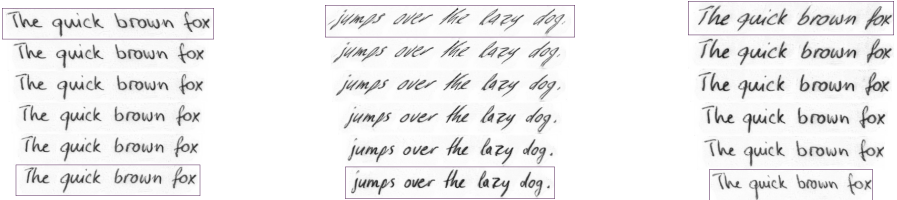 The quick brown fox
The quick brown fox
The quick brown fox
The quick brown fox
The quick brown fox
The quick brown fox
jumps over the lazy dog.
jumps over the lazy dog.
jumps over the lazy dog.
jumps over the lazy dog.
jumps over the lazy dog.
jumps over the lazy dog.
The quick brown fox
The quick brown fox
The quick brown fox
The quick brown fox
The quick brown fox
The quick brown fox